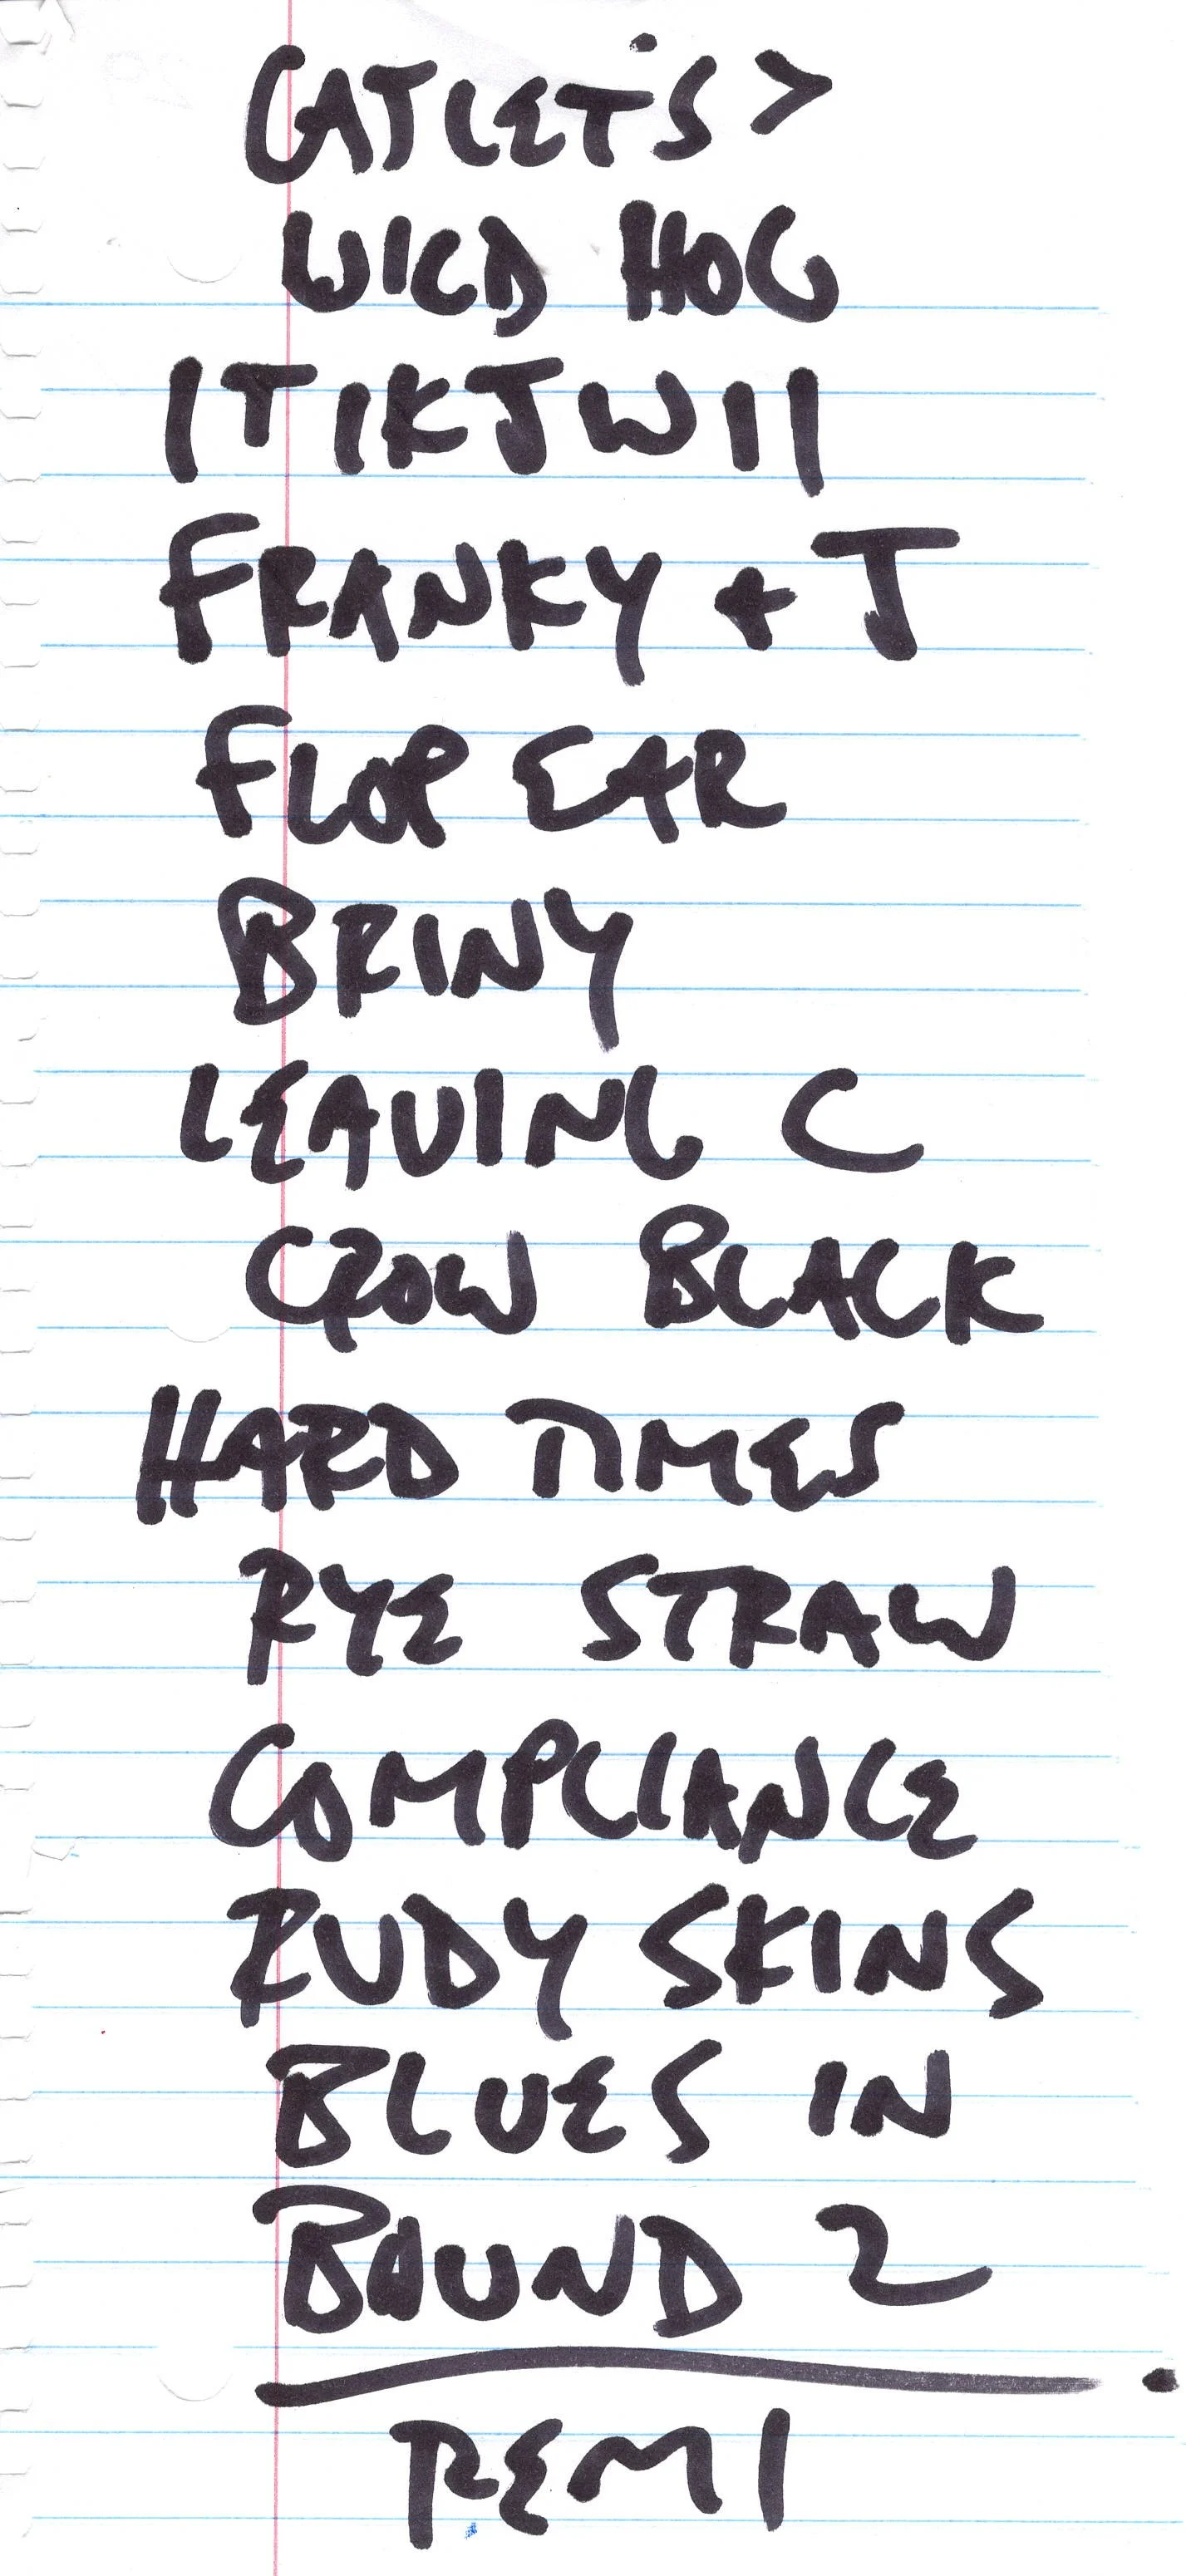 CATLET'S >
WILD HOG
ITIKTWII
FRANKY + J
FLOP EAR
BRINY
LEAVING C
CROW BLACK
HARD TIMES
RYE STRAW
COMPLIANCE
RUDY SKINS
BLUES IN
BOUND 2
REMI